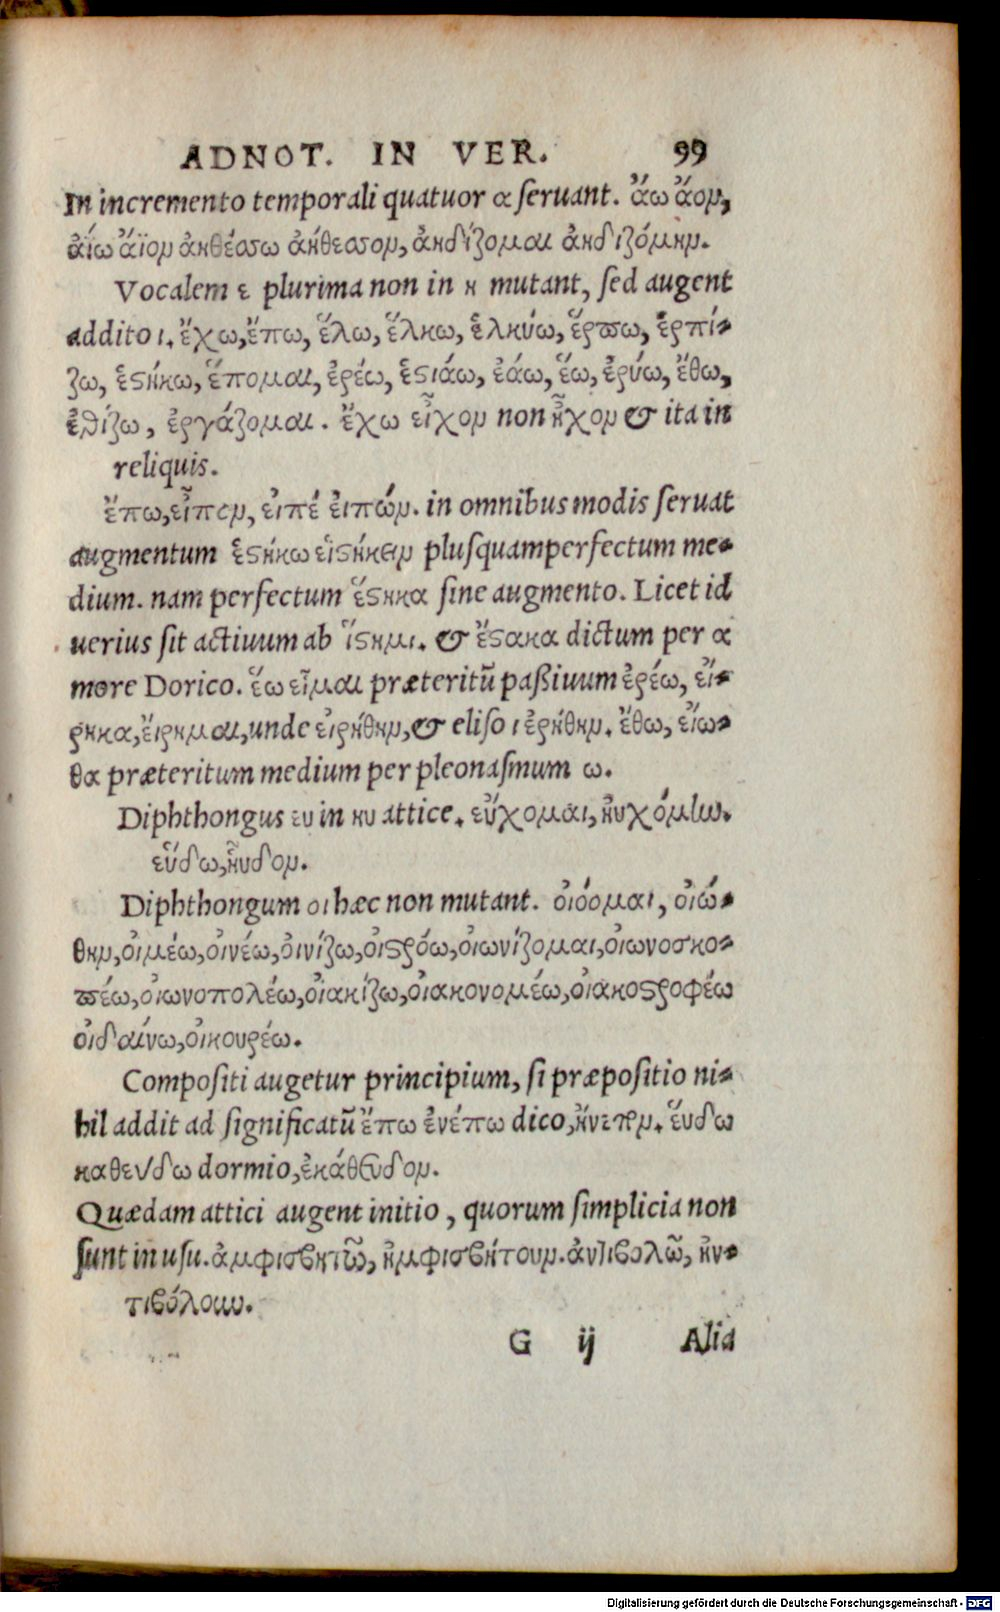 ADNOT. IN VER. 99
In incremento temporali quatuor α seruant. ἄω ἄον,
ἀΐω ἄϊον ἀηθέσσω ἀήθεσσον, ἀηδίζομαι ἀηδιζόμην.
Vocalem ε plurima non in η mutant, sed augent
addito ι. ἔχω, ἕπω, ἕλω, ἕλκω, ἑλκύω, ἕρπω, ἑρπί-
ζω, ἑστήκω, ἕπομαι, ἐρέω, ἑστιάω, ἐάω, ἕω, ἐρύω, ἔθω,
ἐθίζω, ἐργάζομαι. ἔχω εἶχον non ἦχον & ita in
reliquis.
ἔπω, εἶπον, εἰπέ εἰπών. in omnibus modis seruat
augmentum ἑστήκω εἱστήκειν plusquamperfectum me-
dium. nam perfectum ἕστηκα sine augmento. Licet id
uerius sit actiuum ab ἵστημι. & ἕστακα dictum per α
more Dorico. ἕω εἷμαι præteritũ paßiuum ἐρέω, εἴ-
ρηκα, εἴρημαι, unde εἰρήθην, & eliso ι ἐρήθην. ἔθω, εἴω-
θα præteritum medium per pleonasmum ω.
Diphthongus ευ in ηυ attice. εὔχομαι, ηὐχόμην.
εὕδω, ηὗδον.
Diphthongum οι hæc non mutant. οἰόομαι, οἰώ-
θην, οἰμέω, οἰνέω, οἰνίζω, οἰστρόω, οἰωνίζομαι, οἰωνοσκο-
πέω, οἰωνοπολέω, οἰακίζω, οἰακονομέω, οἰακοστροφέω
οἰδαίνω, οἰκουρέω.
Compositi augetur principium, si præpositio ni-
hil addit ad significatũ ἔπω ἐνέπω dico, ἤνεπον. εὕδω
καθεύδω dormio, ἐκάθευδον.
Quædam attici augent initio, quorum simplicia non
sunt in usu. ἀμφισβητῶ, ἠμφισβήτουν. ἀντιβολῶ, ἠν-
τιβόλουν.
G ij Alia
Digitalisierung gefördert durch die Deutsche Forschungsgemeinschaft - DFG